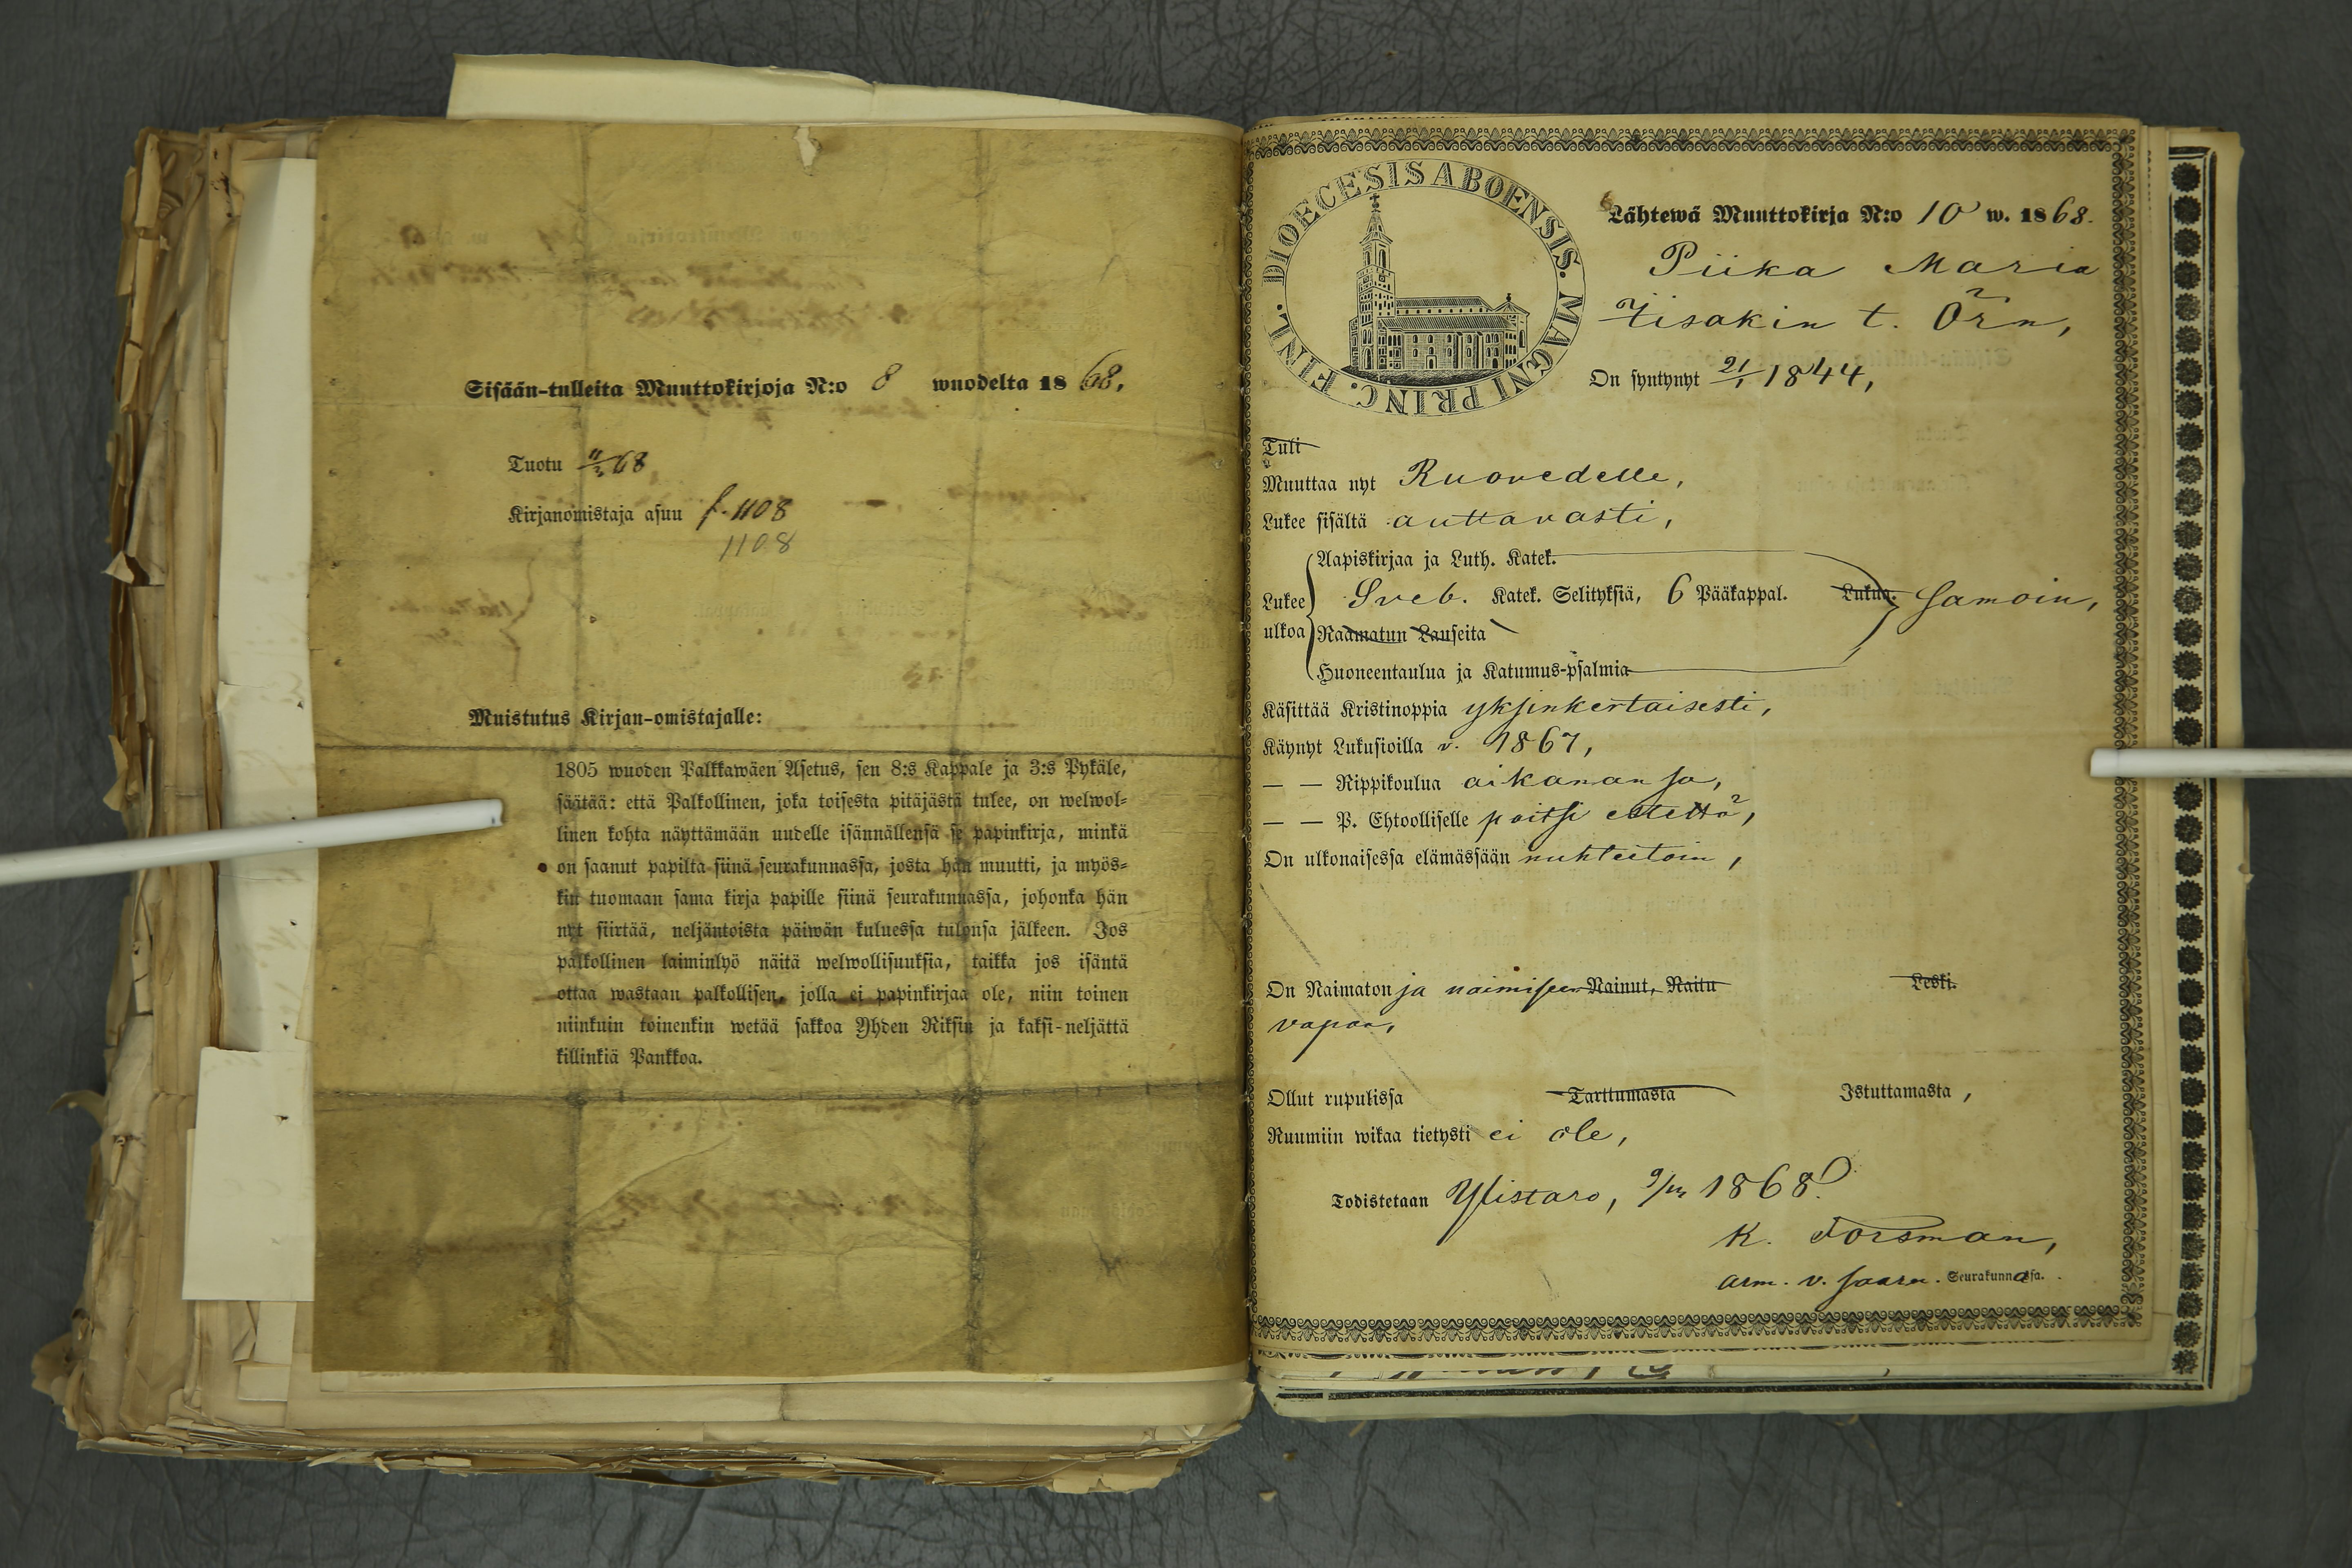 Sisään-tulleita Muuttokirjoja N:o 8 wuodelta 18 68.
Tuotu 11/3 68
Kirjanomistaja asuu f. 1108
1108
Muistutus Kirjan-omistajalle:
1805 wuoden Palkkawäen Asetus, sen 8:s Kappale ja 3:s Pykäle,
säätää: että Palkollinen, joka toisesta pitäjästä tulee, on welwol-
linen kohta näyttämään uudelle isännällensä se papinkirja, minkä
on saanut papilta siinä seurakunnassa, josta hän muutti, ja myös-
kin tuomaan sama kirja papille siinä seurakunnassa, johonka hän
nyt siirtää, neljäntoista päiwän kuluessa tulonsa jälkeen. Jos
palkollinen laiminlyö näitä welwollisuuksia, taikka jos isäntä
ottaa wastaan palkollisen, jolla ei papinkirjaa ole, niin toinen
niinkuin toinenkin wetää sakkoa Yhden Riksin ja kaksi-neljättä
killinkiä Pankkoa.
DIOECESIS ABOENSIS. MAGNI PRINC. FINL.
Lähtewä Muuttokirja N:o 10 w. 18 68.
Piika Maria
Iisakin t. Örn,
On syntynyt 21/1 1844,
Tuli
Muuttaa nyt Ruovedelle,
Lukee sisältä auttavasti,
Aapiskirjaa ja Luth. Katek.
Lukee ulkoa Sveb. Katek. Selityksiä, 6 Pääkappal. Lukua. samoin,
Raamatun Lauseita
Huoneentaulua ja Katumus-psalmia
Käsittää Kristinoppia yksinkertaisesti,
Käynyt Lukusioilla v. 1867,
— — Rippikoulua aikanansa,
— — P. Ehtoolliselle paitsi estettä,
On ulkonaisessa elämässään nuhteetoin,
On Naimaton ja naimiseen Nainut, Raitu Leski.
vapaa,
Ollut rupulissa Tarttumasta Istuttamasta,
Ruumiin wikaa tietysti ei ole,
Todistetaan Ylistaro, 9/III 1868.
K. Forsman,
arm. v. saarn. Seurakunnassa.